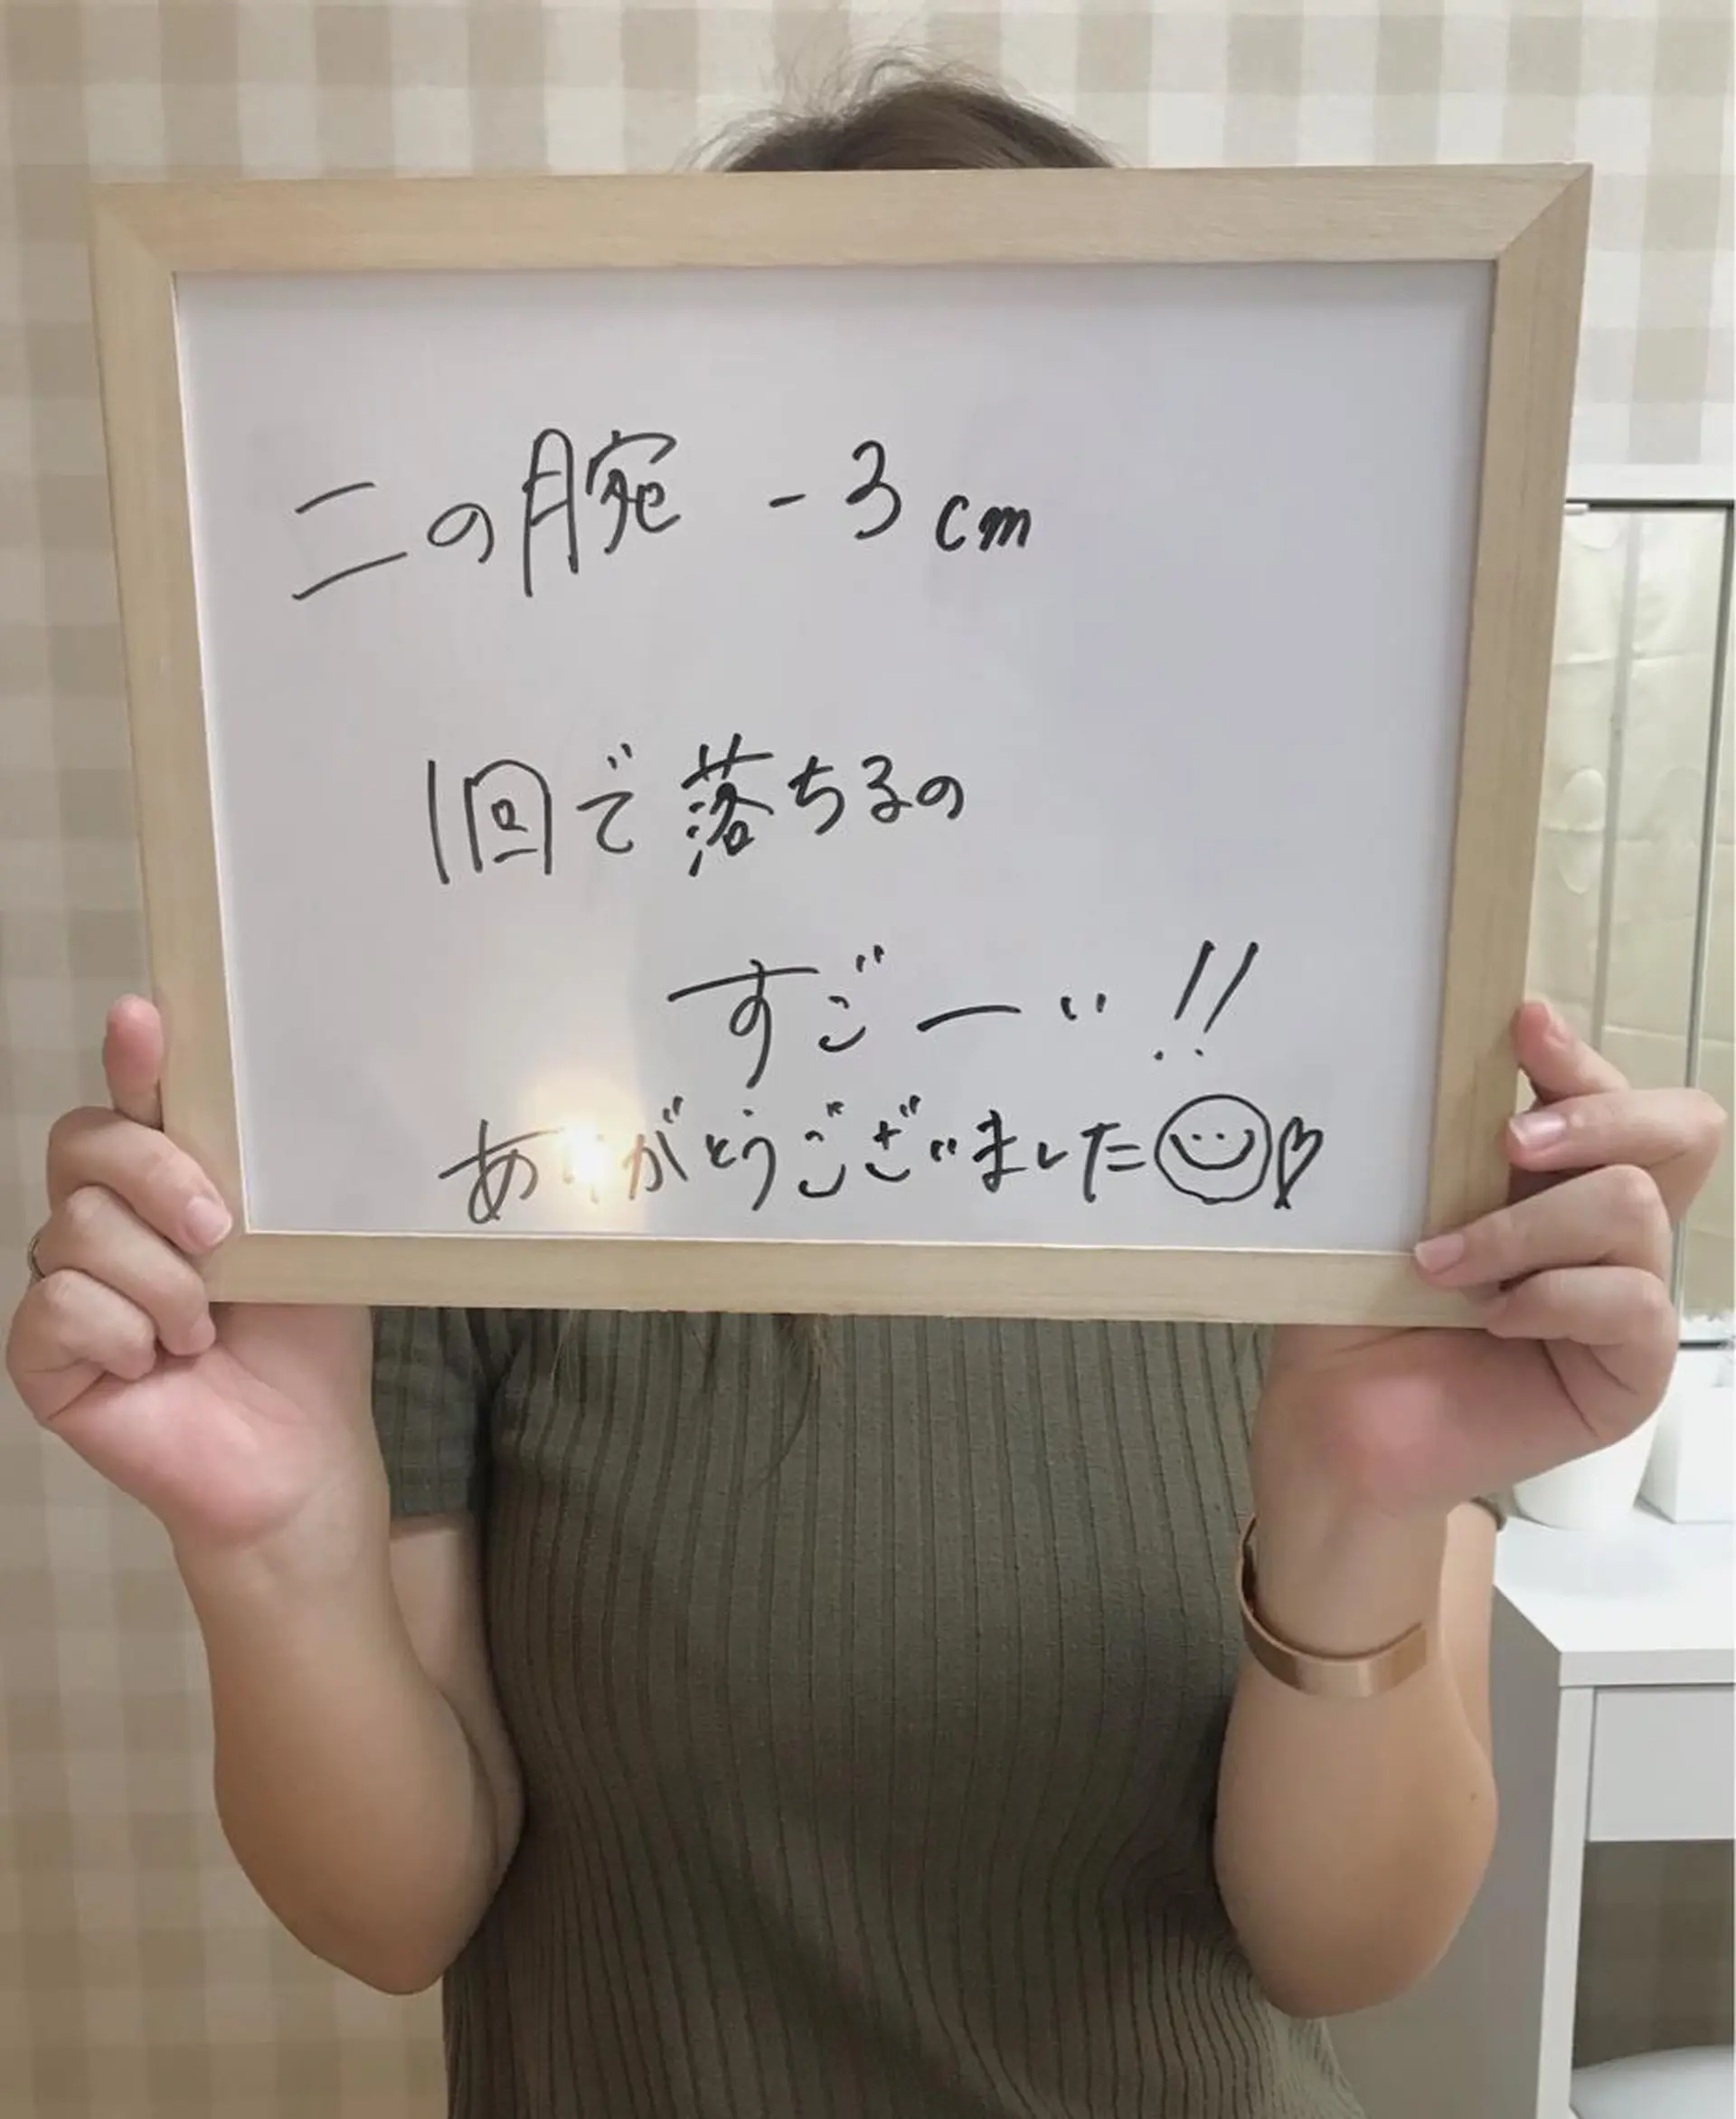 二の腕 -3cm
1回で落ちるの
すごーい!!
ありがとうございました